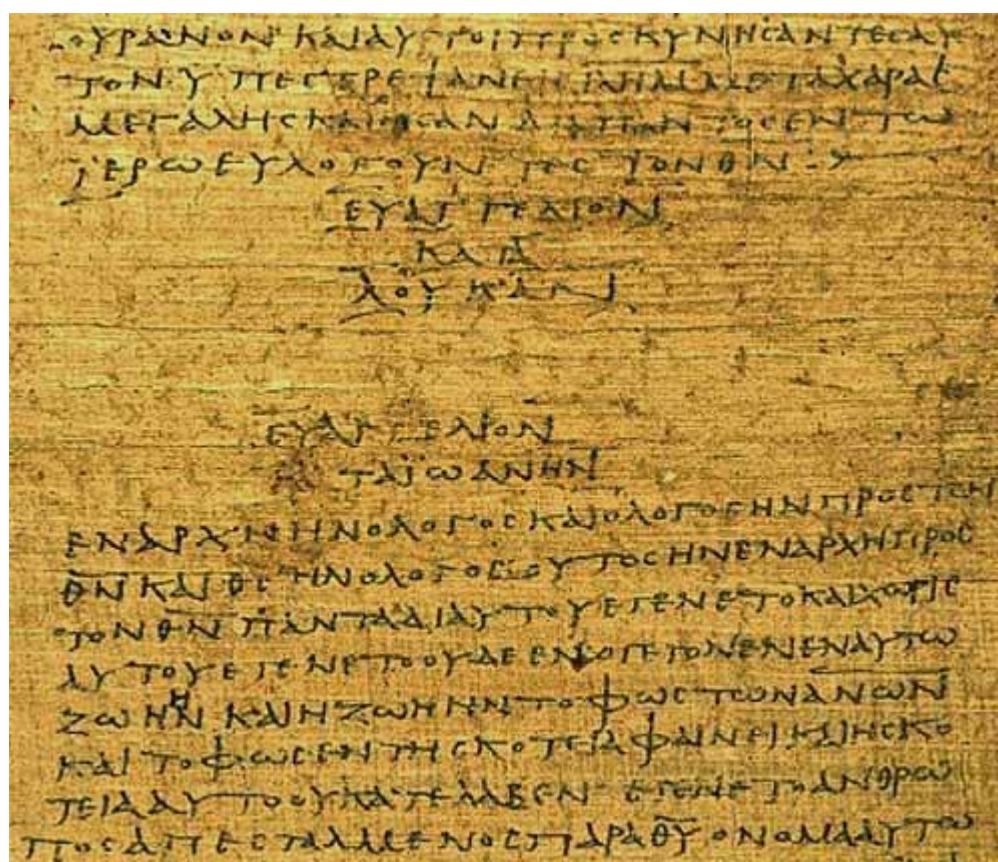 ΟΥΡΑΝΟΝ ΚΑΙ ΑΥΤΟΙ ΠΡΟϹΚΥΝΗϹΑΝΤΕϹ ΑΥ
ΤΟΝ ΥΠΕϹΤΡΕΨΑΝ ΕΙϹ ΙΛΗΜ ΜΕΤΑ ΧΑΡΑϹ
ΜΕΓΑΛΗϹ ΚΑΙ ΗϹΑΝ ΔΙΑ ΠΑΝΤΟϹ ΕΝ ΤΩ
ΪΕΡΩ ΕΥΛΟΓΟΥΝΤΕϹ ΤΟΝ Θ̅Ν̅
ΕΥΑΓΓΕΛΙΟΝ
ΚΑΤΑ
ΛΟΥΚΑΝ
ΕΥΑΓΓΕΛΙΟΝ
ΚΑΤΑ ΪΩΑΝΗΝ
ΕΝ ΑΡΧΗ ΗΝ Ο ΛΟΓΟϹ ΚΑΙ Ο ΛΟΓΟϹ ΗΝ ΠΡΟϹ ΤΟΝ
Θ̅Ν̅ ΚΑΙ Θ̅Ϲ̅ ΗΝ Ο ΛΟΓΟϹ ΟΥΤΟϹ ΗΝ ΕΝ ΑΡΧΗ ΠΡΟϹ
ΤΟΝ Θ̅Ν̅ ΠΑΝΤΑ ΔΙ ΑΥΤΟΥ ΕΓΕΝΕΤΟ ΚΑΙ ΧΩΡΙϹ
ΑΥΤΟΥ ΕΓΕΝΕΤΟ ΟΥΔΕ ΕΝ Ο ΓΕΓΟΝΕΝ ΕΝ ΑΥΤΩ
ΖΩΗ ΗΝ ΚΑΙ Η ΖΩΗ ΗΝ ΤΟ ΦΩϹ ΤΩΝ Α̅Ν̅Ω̅Ν̅
ΚΑΙ ΤΟ ΦΩϹ ΕΝ ΤΗ ϹΚΟΤΕΙΑ ΦΑΙΝΕΙ ΚΑΙ Η ϹΚΟ
ΤΕΙΑ ΑΥΤΟ ΟΥ ΚΑΤΕΛΑΒΕΝ ΕΓΕΝΕΤΟ ΑΝΘΡΩ
ΠΟϹ ΑΠΕϹΤΑΛΜΕΝΟϹ ΠΑΡΑ Θ̅Υ̅ ΟΝΟΜΑ ΑΥΤΩ